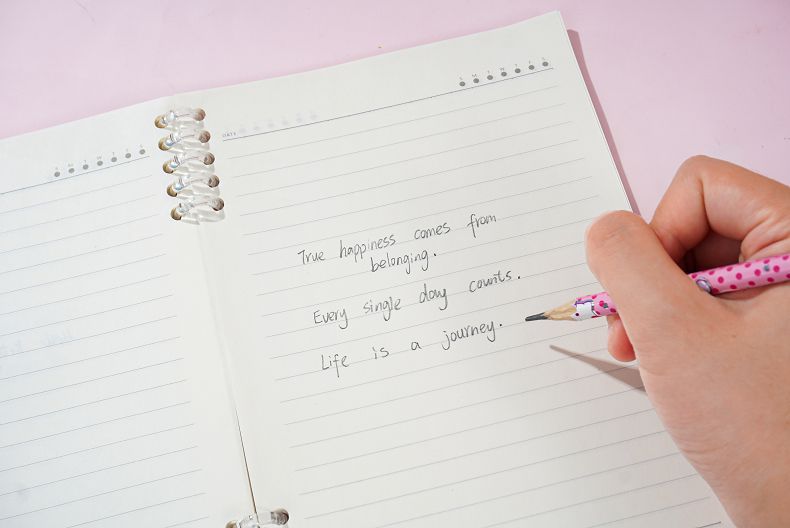 S M T W T F S
DATE
S M T W T F S
True happiness comes from
belonging.
Every single day counts.
Life is a journey.